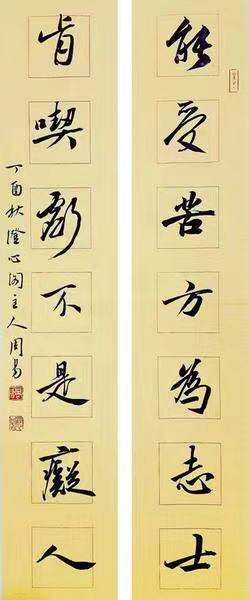 能受苦方為志士
肯喫虧不是癡人
丁酉秋澄心阁主人周易